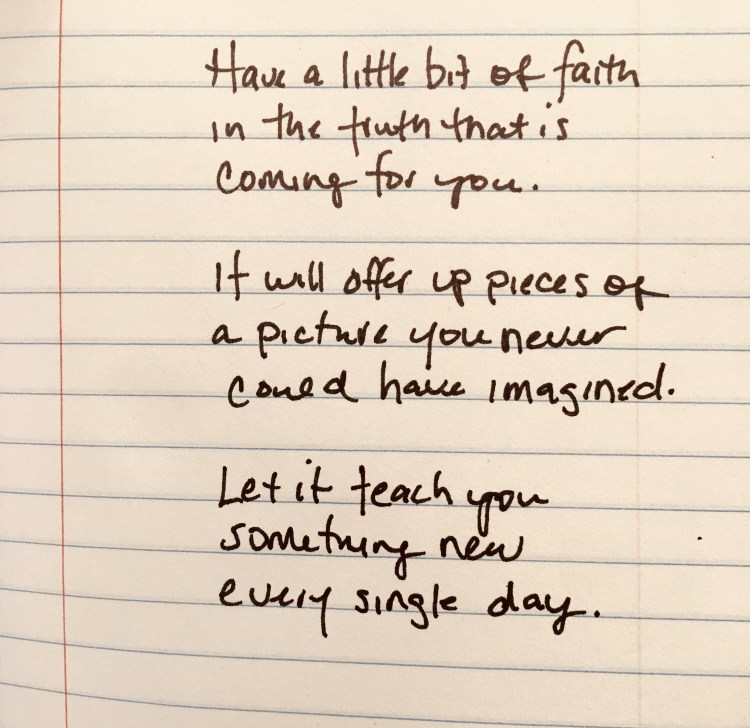 Have a little bit of faith
in the truth that is
coming for you.
It will offer up pieces of
a picture you never
could have imagined.
Let it teach you
something new
every single day.